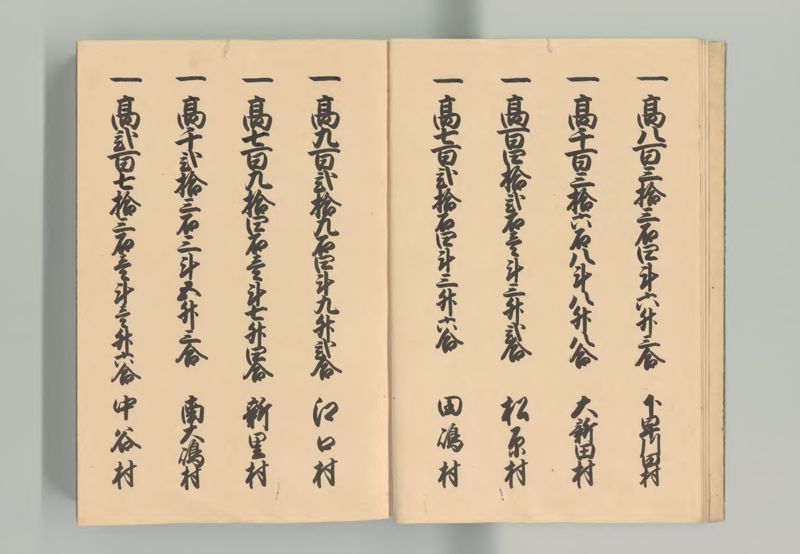 一 高八百三拾三石四斗六升三合 下早川田村
一 高千百三拾六石八斗八升八合 大新田村
一 高百四拾弐石壱斗三升弐合 松原村
一 高七百弐拾石四斗三升六合 田嶋村
一 高九百弐拾九石四斗九升弐合 江口村
一 高七百九拾四石壱斗七升四合 新里村
一 高千弐拾三石三斗五升三合 南大嶋村
一 高弐百七拾三石壱斗壱升六合 中谷村